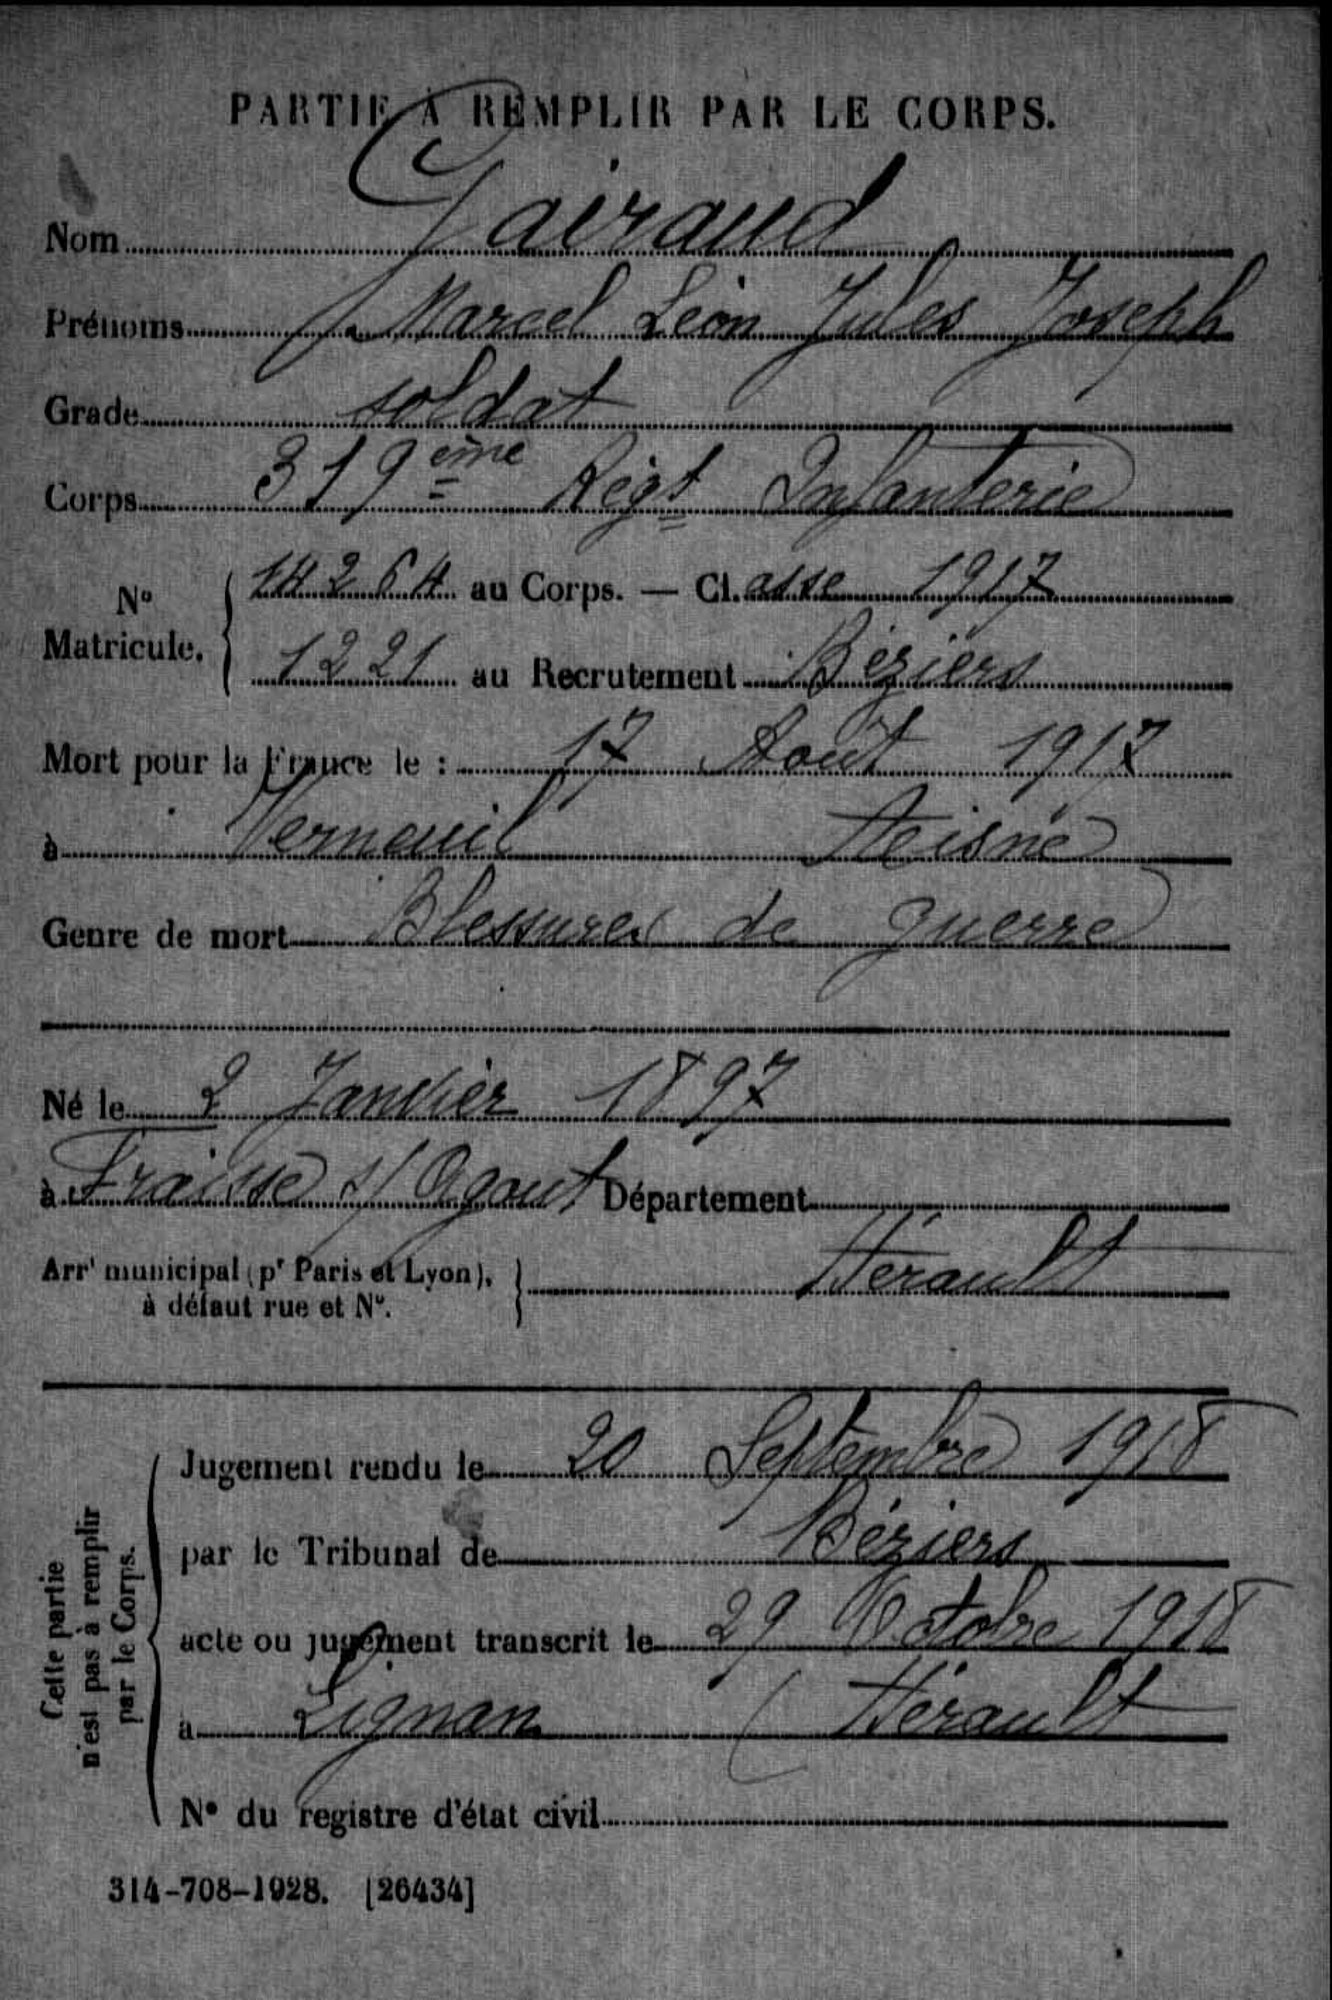 PARTIE À REMPLIR PAR LE CORPS.
Nom Gairaud
Prénoms Marcel Léon Jules Joseph
Grade soldat
Corps 319ème Régt Infanterie
No Matricule. { 14264 au Corps. — Cl.asse 1917
1221 au Recrutement Béziers
Mort pour la France le : 17 Août 1917
à Verneuil Aisne
Genre de mort Blessures de guerre
Né le 2 Janvier 1897
à Fraisse s/ Agout Département
Arrt municipal (pr Paris et Lyon), } Hérault
à défaut rue et No.
Cette partie
n'est pas à remplir
par le Corps.
Jugement rendu le 20 Septembre 1918
par le Tribunal de Béziers
acte ou jugement transcrit le 29 Octobre 1918
à Lignan (Hérault
No du registre d'état civil
314-708-1928. [26434]